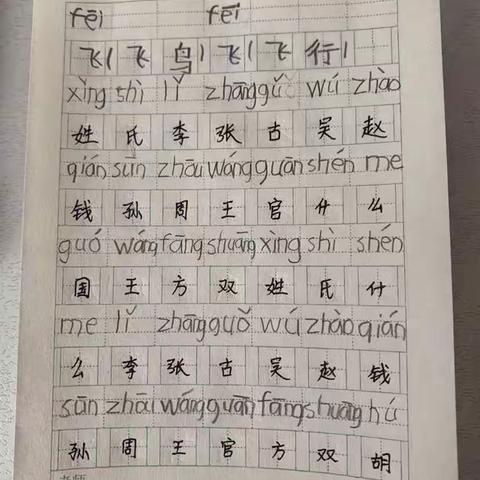 fēi fēi
飞 飞 鸟 飞 飞 行
xìng shì lǐ zhāng gǔ wú zhào
姓 氏 李 张 古 吴 赵
qián sūn zhōu wáng guān shén me
钱 孙 周 王 官 什 么
guó wáng fāng shuāng xìng shì shén
国 王 方 双 姓 氏 什
me lǐ zhāng guǒ wú zhào qián
么 李 张 古 吴 赵 钱
sūn zhōu wáng guān fāng shuāng hú
孙 周 王 官 方 双 胡